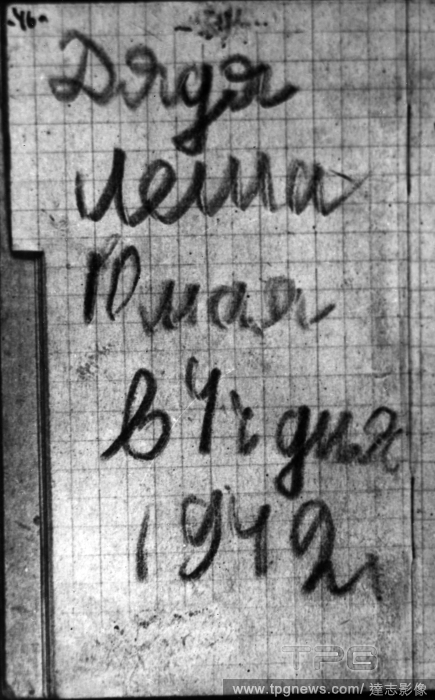 -46-
Дядя
Леша
10 мая
в 4ч дня
1942г
TPG
www.tpgnews.com/ 達志影像